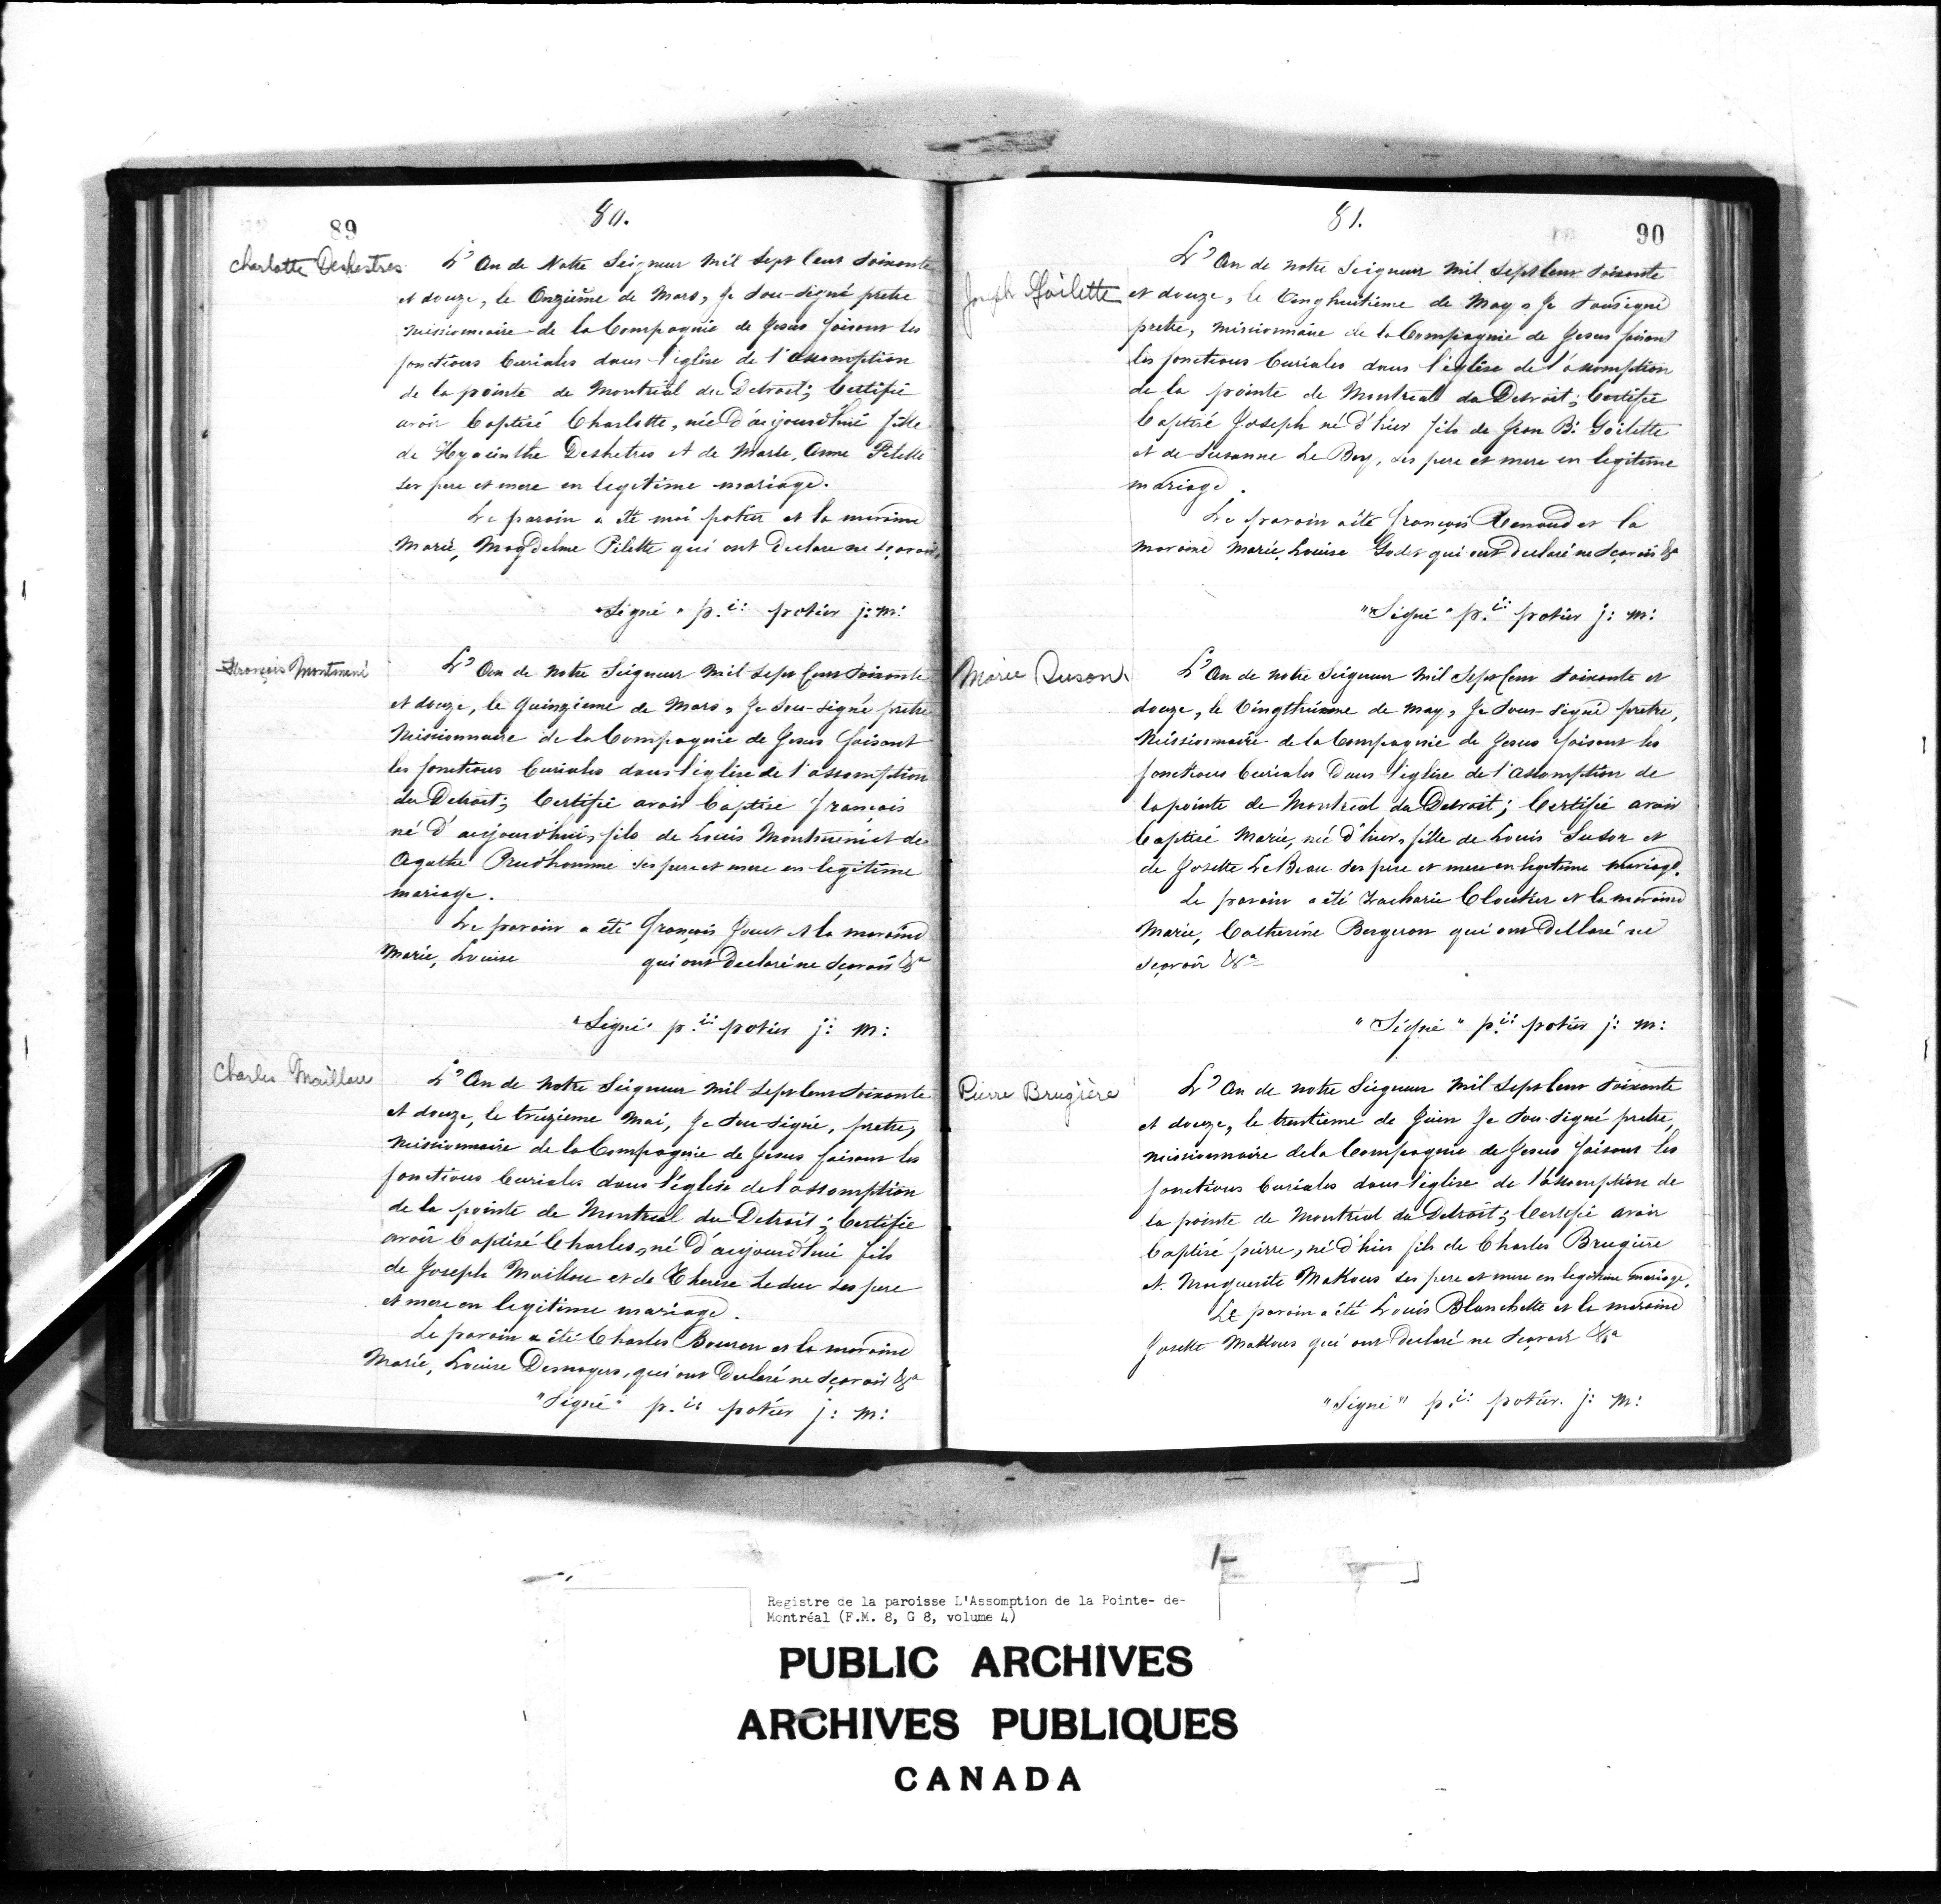 89
80.
Charlotte Deshestres
L'An de Notre Seigneur mil sept cent soixante
et douze, le Onzième de Mars, Je sou-signé pretre
missionnaire de la Compagnie de Jesus faisant les
fonctions Curiales dans l'église de l'assomption
de la pointe de Montreal du Detroit; Certifie
avoir baptisé Charlotte, née d'aujourd'hui fille
de Hyacinthe Deshetres et de Marie, Anne Pilette
ses pere et mere en legitime mariage.
Le parain a été moi potier et la maraine
Marie, Magdelene Pilette qui ont declare ne sçavoir
"Signé" p.ii: potier j: m:
François Montmeni
L'An de notre Seigneur mil sept Cent soixante
et douze, le quinzieme de Mars, Je sou-signé pretre
Missionnaire de la Compagnie de Jesus faisant
les fonctions Curiales dans l'église de l'assomption
du Detroit; Certifie avoir baptisé françois
né d'aujourd'hui, fils de Louis Montmeni et de
Agathe Prud'homme ses pere et mere en legitime
mariage.
Le parain a été François et la maraine
Marie, Louise qui ont declaré ne sçavoir &a
"Signé" p.ii: potier j: m:
Charles Maillou
L'An de notre Seigneur mil sept cent soixante
et douze, le treizieme Mai, Je sou-signé, pretre,
missionnaire de la Compagnie de Jesus faisant les
fonctions Curiales dans l'église de l'assomption
de la pointe de Montreal du Detroit; Certifie
avoir baptisé Charles, né d'aujourd'hui fils
de Joseph Maillou et de Therese Leduc ses pere
et mere en legitime mariage.
Le parain a été Charles Bouron et la maraine
Marie, Louise Desnoyers, qui ont declaré ne sçavoir &a
"Signé" p.ii potier j: m:
81.
90
Joseph Goilette
L'An de notre Seigneur mil sept cent soixante
et douze, le vinghuitieme de May, Je sousigné
pretre, missionnaire de la Compagnie de Jesus faisant
les fonctions Curiales dans l'église de l'assomption
de la pointe de Montreal du Detroit; Certifie
baptisé Joseph né d'hier fils de Jean B: Goilette
et de Susanne Le Boy, ses pere et mere en legitime
mariage.
Le parain a été françois Renaud et la
maraine Marie, Louise Godet qui ont declaré ne sçavoir &a
"Signé" p.ii: potier j: m:
Marie Suson
L'An de notre Seigneur mil sept Cent soixante et
douze, le de may, Je sous-signé pretre,
Missionnaire de la Compagnie de Jesus faisant les
fonctions Curiales dans l'église de l'assomption de
la pointe de Montreal du Detroit; Certifie avoir
baptisé Marie, née d'hier, fille de Louis Suson et
de Josette LeBeau ses pere et mere en legitime mariage.
Le parain a été Zacharie Cloutier et la maraine
Marie, Catherine Bergeron qui ont dellaré ne
sçavoir &a
"Signé" p.ii: potier j: m:
Pierre Brugière
L'An de notre Seigneur mil sept cent soixante
et douze, le trentieme de Juin Je sou-signé pretre,
missionnaire de la Compagnie de Jesus faisant les
fonctions Curiales dans l'église de l'assomption de
la pointe de Montreal du Detroit; Certifie avoir
baptisé pierre, né d'hier fils de Charles Brugière
et Marguerite Makous ses pere et mere en legitime mariage.
Le parain a été Louis Blanchette et la maraine
Josette Makous qui ont declaré ne sçavoir &a
"Signé" p.ii: potier. j: m:
Registre de la paroisse L'Assomption de la Pointe- de-
Montréal (F.M. 8, G 8, volume 4)
PUBLIC ARCHIVES
ARCHIVES PUBLIQUES
CANADA